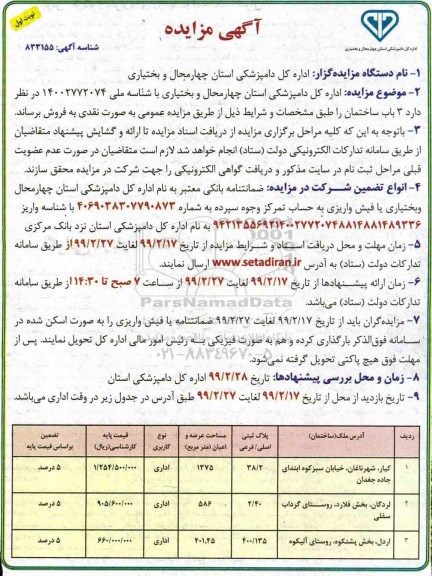 نوبت اول
آگهی مزایده
اداره کل دامپزشکی استان چهارمحال و بختیاری
شناسه آگهی: ۸۳۳۱۵۵
۱- نام دستگاه مزایده‌گزار: اداره کل دامپزشکی استان چهارمحال و بختیاری
۲- موضوع مزایده: اداره کل دامپزشکی استان چهارمحال و بختیاری با شناسه ملی ۱۴۰۰۲۷۷۲۰۷۴ در نظر
دارد ۳ باب ساختمان را طبق مشخصات و شرایط ذیل از طریق مزایده عمومی به صورت نقدی به فروش برساند.
۳- باتوجه به این که کلیه مراحل برگزاری مزایده از دریافت اسناد مزایده تا ارائه و گشایش پیشنهاد متقاضیان
از طریق سامانه تدارکات الکترونیکی دولت (ستاد) انجام خواهد شد لازم است متقاضیان در صورت عدم عضویت
قبلی مراحل ثبت نام در سایت مذکور و دریافت گواهی الکترونیکی را جهت شرکت در مزایده محقق سازند.
۴- انواع تضمین شرکت در مزایده: ضمانتنامه بانکی معتبر به نام اداره کل دامپزشکی استان چهارمحال
وبختیاری یا فیش واریزی به حساب تمرکز وجوه سپرده به شماره ۴۰۶۹۰۳۸۳۰۷۷۹۰۸۷۳ با شناسه واریز
به نام اداره کل دامپزشکی استان نزد بانک مرکزی
۵- زمان مهلت و محل دریافت اسناد و شرایط مزایده از تاریخ ۹۹/۲/۱۷ لغایت ۹۹/۲/۲۷ از طریق سامانه
تدارکات دولت (ستاد) به آدرس www.setadiran.ir ارسال نمایند.
۶- زمان ارائه پیشنهادها از تاریخ ۹۹/۲/۱۷ لغایت ۹۹/۲/۲۷ از ساعت ۷ صبح تا ۱۴:۳۰ از طریق سامانه
تدارکات دولت (ستاد) می‌باشد.
۷- مزایده‌گران باید از تاریخ ۹۹/۲/۱۷ لغایت ۹۹/۲/۲۷ ضمانتنامه یا فیش واریزی را به صورت اسکن شده در
سامانه فوق‌الذکر بارگذاری کرده و هم به صورت فیزیکی به رئیس امور مالی اداره کل تحویل نمایند. پس از
مهلت فوق هیچ پاکتی تحویل گرفته نمی‌شود.
۸- زمان و محل بررسی پیشنهادها: تاریخ ۹۹/۲/۲۸ اداره کل دامپزشکی استان
۹- تاریخ بازدید از محل از تاریخ ۹۹/۲/۱۷ لغایت ۹۹/۲/۲۷ طبق آدرس در جدول زیر در وقت اداری می‌باشد.
ردیف آدرس ملک(ساختمان) پلاک ثبتی اصلی/ فرعی مساحت عرصه و اعیان (متر مربع) نوع کاربری قیمت پایه کارشناسی(ریال) تضمین براساس قیمت پایه
۱ کیار، شهرناغان، خیابان سبزکوه ابتدای جاده جغدان ۳۸/۲ ۱۳۷۵ اداری ۱/۲۵۴/۵۰۰/۰۰۰ ۵ درصد
۲ لردگان، بخش فلارد، روستای گرداب سفلی ۲/۴۰ ۵۸۶ اداری ۹۰۵/۶۰۰/۰۰۰ ۵ درصد
۳ اردل، بخش پشتکوه، روستای آلیکوه ۴۰۰/۱۳۵ ۲۰۱,۴۵ اداری ۶۶۰/۰۰۰/۰۰۰ ۵ درصد
ParsNamadData
۰۲۱-۸۸۳۴۹۶۷۰